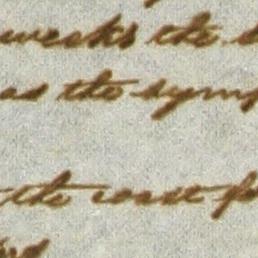 weeks the
as the symp
the coast fo